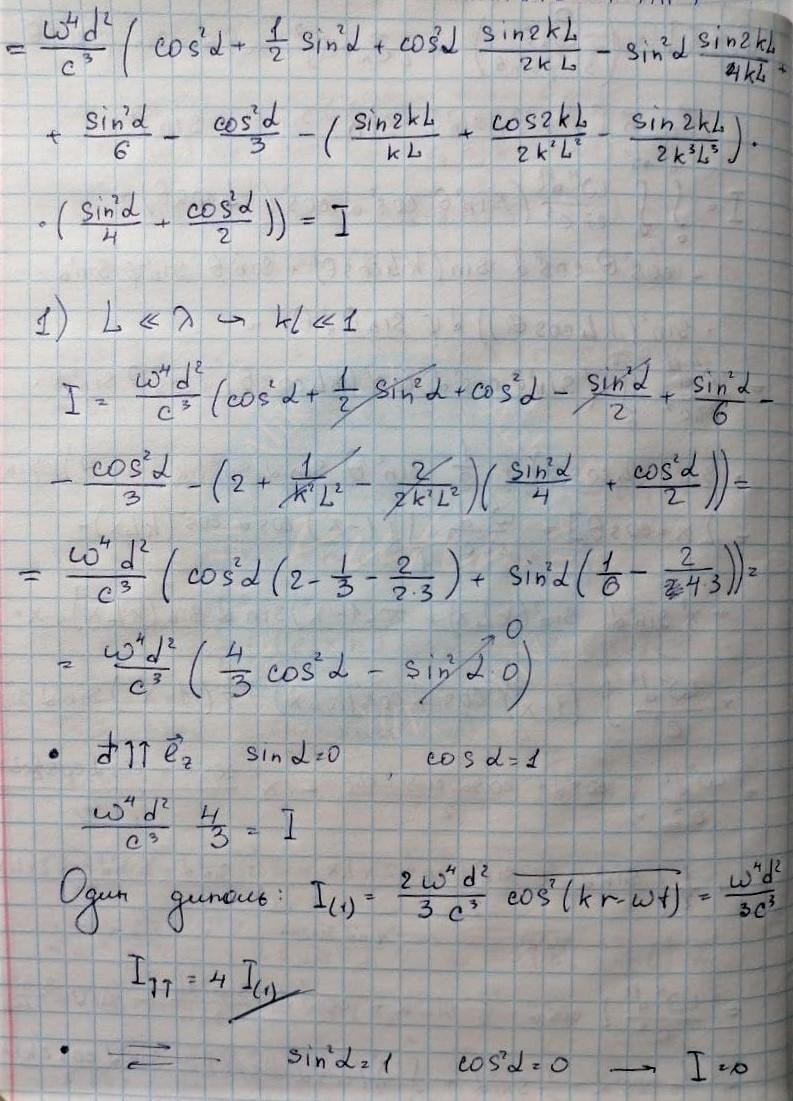 = ω⁴d²/c³ ( cos²α + 1/2 sin²α + cos²α sin2kL/2kL − sin²α sin2kL/4kL +
+ sin²α/6 − cos²α/3 − ( sin2kL/kL + cos2kL/2k²L² − sin2kL/2k³L³ ) ·
· ( sin²α/4 + cos²α/2 )) = I
1) L ≪ λ → kL ≪ 1
I = ω⁴d²/c³ ( cos²α + 1/2 sin²α + cos²α − sin²α/2 + sin²α/6 −
− cos²α/3 − ( 2 + 1/k²L² − 2/2k²L² )( sin²α/4 + cos²α/2 )) =
= ω⁴d²/c³ ( cos²α ( 2 − 1/3 − 2/2·3 ) + sin²α ( 1/6 − 2/4·3 )) =
= ω⁴d²/c³ ( 4/3 cos²α − sin²α·0 ) → 0
• d ↑↑ e⃗z sin α = 0 , cos α = 1
ω⁴d²/c³ 4/3 = I
Один диполь: I₍₁₎ = 2ω⁴d²/3c³ cos²(kr−ωt) = ω⁴d²/3c³
I↑↑ = 4 I₍₁₎
• ⇌ sin²α = 1 cos²α = 0 → I = 0